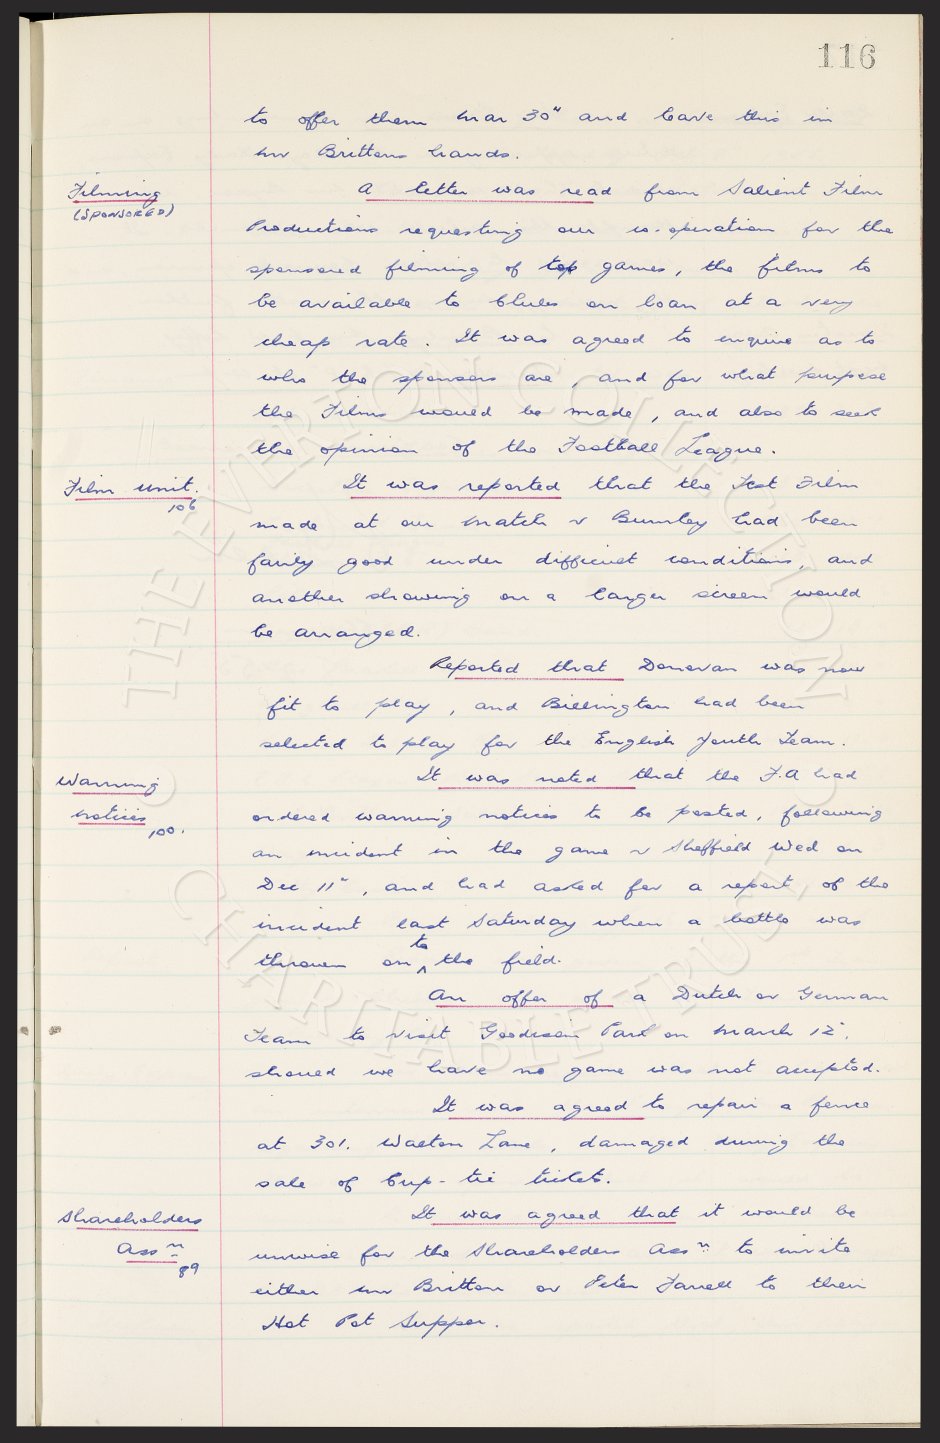 116
to offer them Mar 30" and leave this in
Mr Brittons hands.
Filming
(SPONSORED)
A letter was read from Salient Film
Productions requesting our co-operation for the
sponsored filming of top games, the films to
be available to Clubs on loan at a very
cheap rate. It was agreed to enquire as to
who the sponsors are, and for what purpose
the Films would be made, and also to seek
the opinion of the Football League.
Film Unit.
106
It was reported that the Test Film
made at our match v Burnley had been
fairly good under difficult conditions, and
another showing on a larger screen would
be arranged.
Reported that Donovan was now
fit to play, and Billington had been
selected to play for the English Youth Team.
Warning
notices
100.
It was noted that the F.A had
ordered warning notices to be posted, following
an incident in the game v Sheffield Wed on
Dec 11", and had asked for a report of the
incident last Saturday when a bottle was
thrown on to the field.
An offer of a Dutch or German
Team to visit Goodison Park on March 12",
should we have no game was not accepted.
It was agreed to repair a fence
at 301. Walton Lane, damaged during the
sale of Cup-tie tickets.
Shareholders
Assn
89
It was agreed that it would be
unwise for the Shareholders Assn to invite
either Mr Britton or Peter Farrell to their
Hot Pot Supper.
THE EVERTON COLLECTION
CHARITABLE TRUST